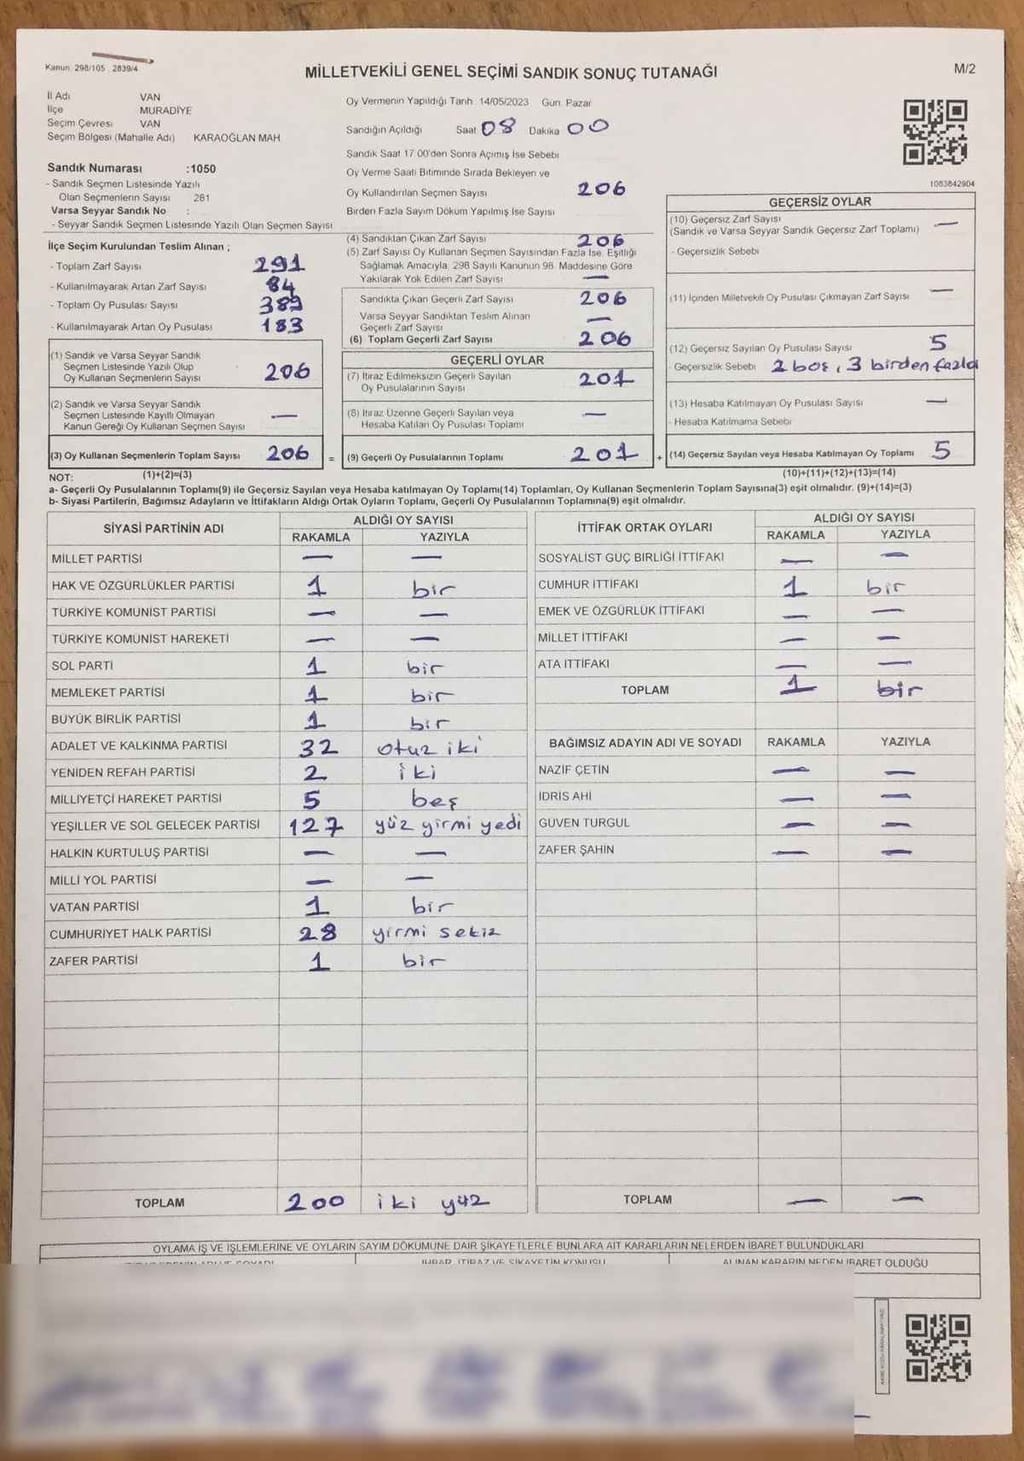 Kanun 298/105 2839/4
MİLLETVEKİLİ GENEL SEÇİMİ SANDIK SONUÇ TUTANAĞI
M/2
İl Adı VAN
İlçe MURADİYE
Seçim Çevresi VAN
Seçim Bölgesi (Mahalle Adı) KARAOĞLAN MAH
Sandık Numarası :1050
- Sandık Seçmen Listesinde Yazılı
Olan Seçmenlerin Sayısı 261
Varsa Seyyar Sandık No :
- Seyyar Sandık Seçmen Listesinde Yazılı Olan Seçmen Sayısı
İlçe Seçim Kurulundan Teslim Alınan ;
- Toplam Zarf Sayısı 291
- Kullanılmayarak Artan Zarf Sayısı 84
- Toplam Oy Pusulası Sayısı 389
- Kullanılmayarak Artan Oy Pusulası 183
(1) Sandık ve Varsa Seyyar Sandık
Seçmen Listesinde Yazılı Olup
Oy Kullanan Seçmenlerin Sayısı 206
(2) Sandık ve Varsa Seyyar Sandık
Seçmen Listesinde Kayıtlı Olmayan
Kanun Gereği Oy Kullanan Seçmen Sayısı —
(3) Oy Kullanan Seçmenlerin Toplam Sayısı 206 =
Oy Vermenin Yapıldığı Tarih 14/05/2023 Gün Pazar
Sandığın Açıldığı Saat 08 Dakika 00
Sandık Saat 17 00'den Sonra Açılmış İse Sebebi
Oy Verme Saati Bitiminde Sırada Bekleyen ve
Oy Kullandırılan Seçmen Sayısı 206
Birden Fazla Sayım Döküm Yapılmış İse Sayısı
(4) Sandıktan Çıkan Zarf Sayısı 206
(5) Zarf Sayısı Oy Kullanan Seçmen Sayısından Fazla İse, Eşitliği
Sağlamak Amacıyla 298 Sayılı Kanunun 98. Maddesine Göre
Yakılarak Yok Edilen Zarf Sayısı —
Sandıkta Çıkan Geçerli Zarf Sayısı 206
Varsa Seyyar Sandıktan Teslim Alınan
Geçerli Zarf Sayısı —
(6) Toplam Geçerli Zarf Sayısı 206
GEÇERLİ OYLAR
(7) İtiraz Edilmeksizin Geçerli Sayılan
Oy Pusulalarının Sayısı 201
(8) İtiraz Üzerine Geçerli Sayılan veya
Hesaba Katılan Oy Pusulası Toplamı —
(9) Geçerli Oy Pusulalarının Toplamı 201 +
1083842904
GEÇERSİZ OYLAR
(10) Geçersiz Zarf Sayısı
(Sandık ve Varsa Seyyar Sandık Geçersiz Zarf Toplamı) —
- Geçersizlik Sebebi
(11) İçinden Milletvekili Oy Pusulası Çıkmayan Zarf Sayısı —
(12) Geçersiz Sayılan Oy Pusulası Sayısı 5
Geçersizlik Sebebi 2 boş, 3 birden fazla
(13) Hesaba Katılmayan Oy Pusulası Sayısı —
- Hesaba Katılmama Sebebi
(14) Geçersiz Sayılan veya Hesaba Katılmayan Oy Toplamı 5
NOT: (1)+(2)=(3) (10)+(11)+(12)+(13)=(14)
a- Geçerli Oy Pusulalarının Toplamı(9) ile Geçersiz Sayılan veya Hesaba katılmayan Oy Toplamı(14) Toplamları, Oy Kullanan Seçmenlerin Toplam Sayısına(3) eşit olmalıdır. (9)+(14)=(3)
b- Siyasi Partilerin, Bağımsız Adayların ve İttifakların Aldığı Ortak Oyların Toplamı, Geçerli Oy Pusulalarının Toplamına(9) eşit olmalıdır.
SİYASİ PARTİNİN ADI ALDIĞI OY SAYISI
RAKAMLA YAZIYLA
MİLLET PARTİSİ — —
HAK VE ÖZGÜRLÜKLER PARTİSİ 1 bir
TÜRKİYE KOMÜNİST PARTİSİ — —
TÜRKİYE KOMÜNİST HAREKETİ — —
SOL PARTİ 1 bir
MEMLEKET PARTİSİ 1 bir
BÜYÜK BİRLİK PARTİSİ 1 bir
ADALET VE KALKINMA PARTİSİ 32 otuz iki
YENİDEN REFAH PARTİSİ 2 iki
MİLLİYETÇİ HAREKET PARTİSİ 5 beş
YEŞİLLER VE SOL GELECEK PARTİSİ 127 yüz yirmi yedi
HALKIN KURTULUŞ PARTİSİ — —
MİLLİ YOL PARTİSİ — —
VATAN PARTİSİ 1 bir
CUMHURİYET HALK PARTİSİ 28 yirmi sekiz
ZAFER PARTİSİ 1 bir
TOPLAM 200 iki yüz
İTTİFAK ORTAK OYLARI ALDIĞI OY SAYISI
RAKAMLA YAZIYLA
SOSYALİST GÜÇ BİRLİĞİ İTTİFAKI — —
CUMHUR İTTİFAKI 1 bir
EMEK VE ÖZGÜRLÜK İTTİFAKI — —
MİLLET İTTİFAKI — —
ATA İTTİFAKI — —
TOPLAM 1 bir
BAĞIMSIZ ADAYIN ADI VE SOYADI RAKAMLA YAZIYLA
NAZİF ÇETİN — —
İDRİS AHİ — —
GÜVEN TURGUL — —
ZAFER ŞAHİN — —
TOPLAM — —
OYLAMA İŞ VE İŞLEMLERİNE VE OYLARIN SAYIM DÖKÜMÜNE DAİR ŞİKAYETLERLE BUNLARA AİT KARARLARIN NELERDEN İBARET BULUNDUKLARI
İHBAR, İTİRAZ VE ŞİKAYETİN KONUSU ALINAN KARARIN NEDEN İBARET OLDUĞU